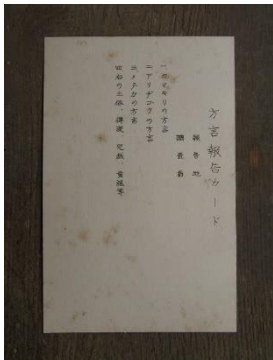 方言報告カード
報告地
調査者
一カマキリの方言
二アリヂゴクの方言
三メダカの方言
四右の土俗、傳説 児戯 童謡等